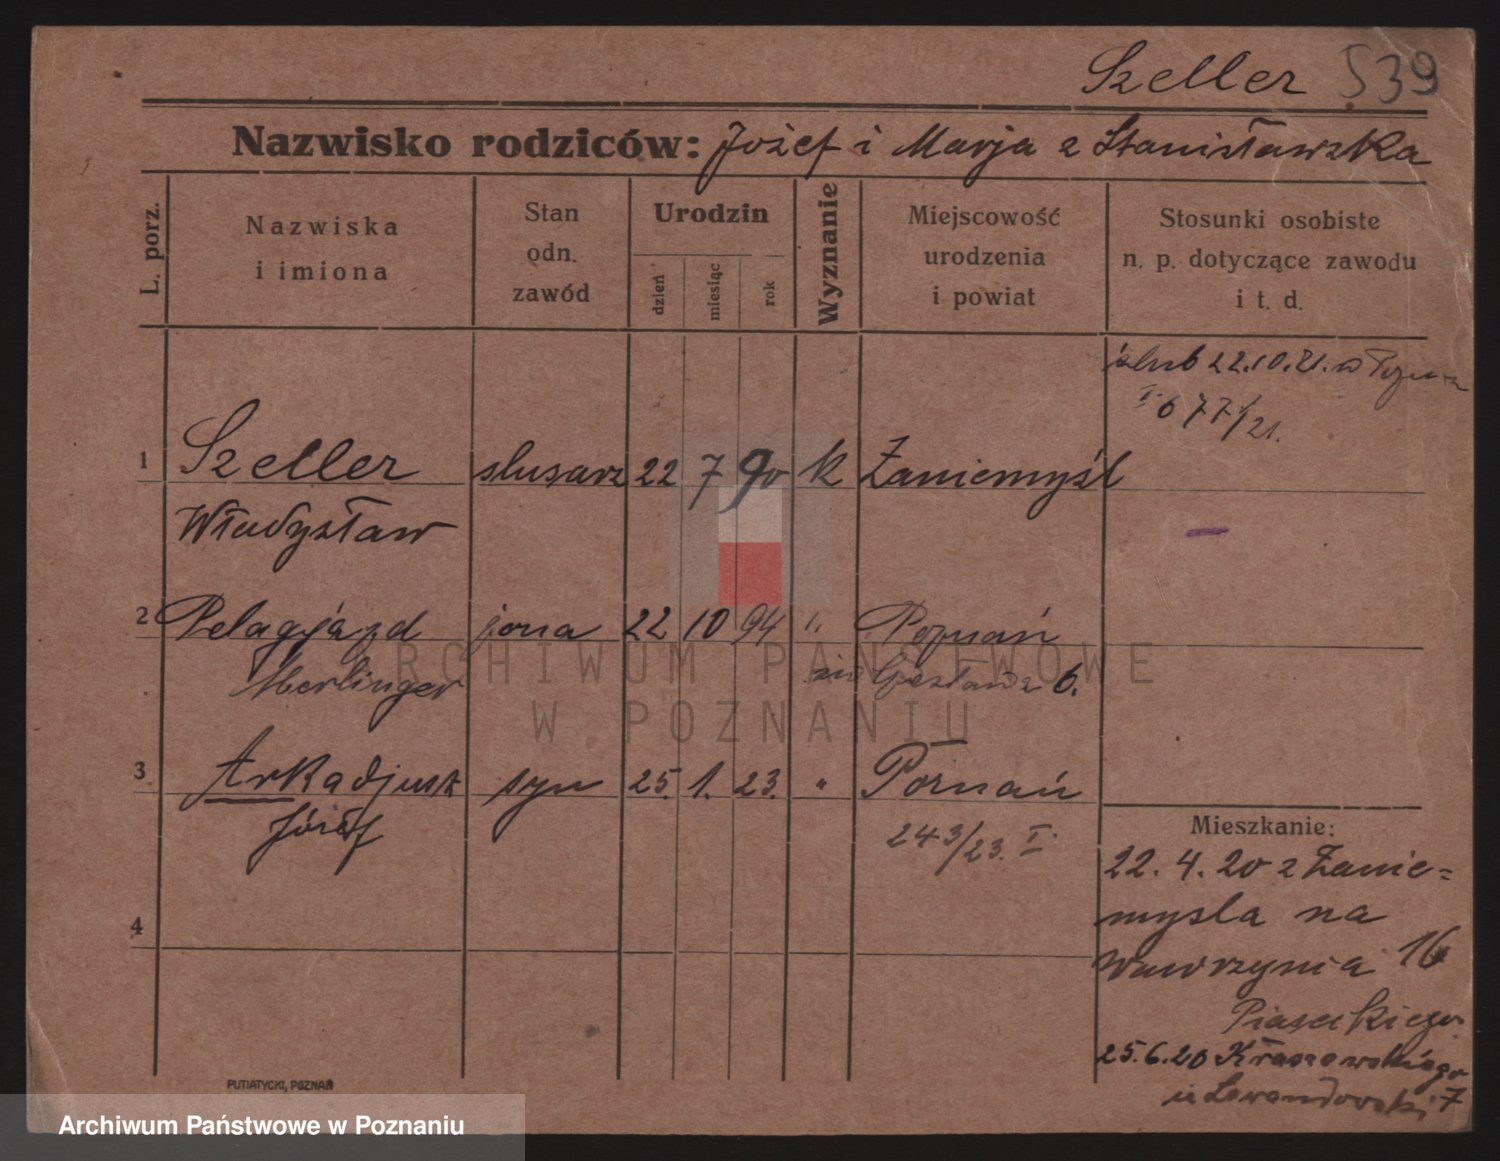 Szeller 539
Nazwisko rodziców: Józef i Marja z Stanisławska
L. porz.
Nazwiska
i imiona
Stan
odn.
zawód
Urodzin
dzień
miesiąc
rok
Wyznanie
Miejscowość
urodzenia
i powiat
Stosunki osobiste
n. p. dotyczące zawodu
i t. d.
ślub 22.10.21. w
I. 677/21.
1 Szeller slusarz 22 7 90 k Zaniemyśl
Władysław
2 Pelagja zd żona 22 10 94 " Poznań
Merlinger 6.
3 Arkadjusz syn 25. 1. 23. " Poznań
Józef
243/23. I.
4
Mieszkanie:
22.4.20 z Zanie=
mysla na
Wawrzynia 16
Piaseckiego
25.6.20 Kraszewskiego
u Lewandowski 7
PUTIATYCKI, POZNAŃ
ARCHIWUM PAŃSTWOWE
W POZNANIU
Archiwum Państwowe w Poznaniu